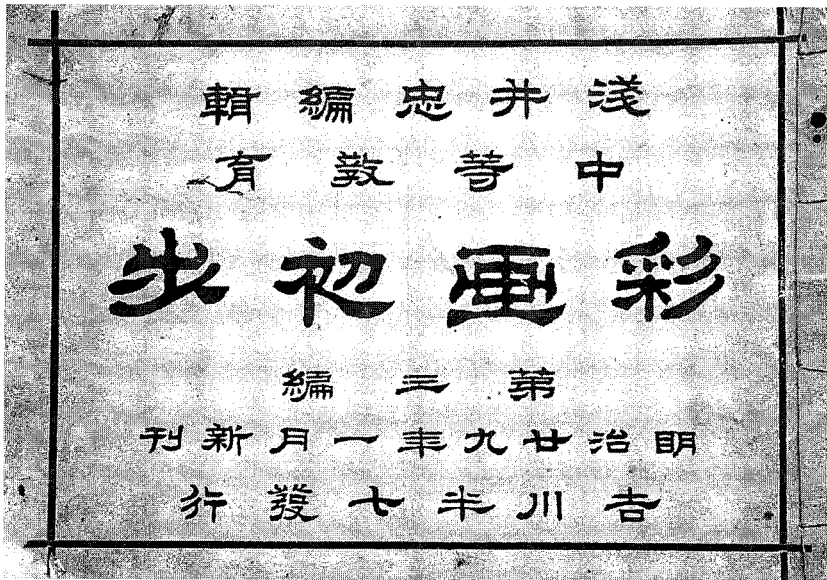 淺井忠編輯
中等敎育
彩画初歩
第三編
明治廿九年一月新刊
吉川半七發行